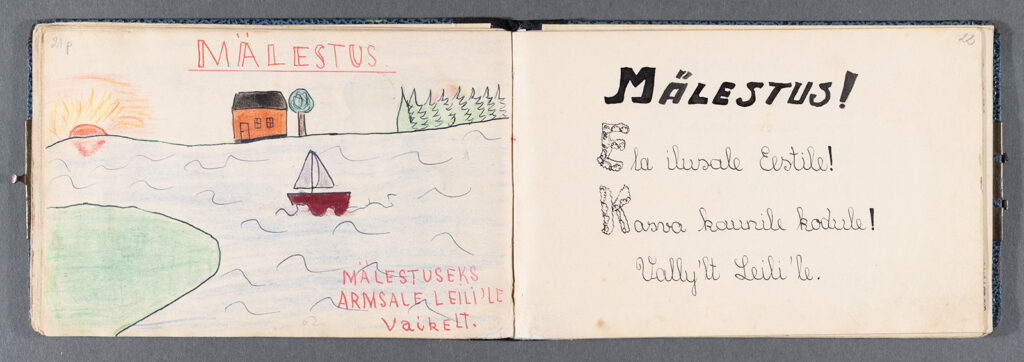 21p
MÄLESTUS.
MÄLESTUSEKS
ARMSALE LEILI'LE
Vaikelt.
22
MÄLESTUS!
Ela ilusale Eestile!
Kasva kaunile kodule!
Vally'lt Leili'le.